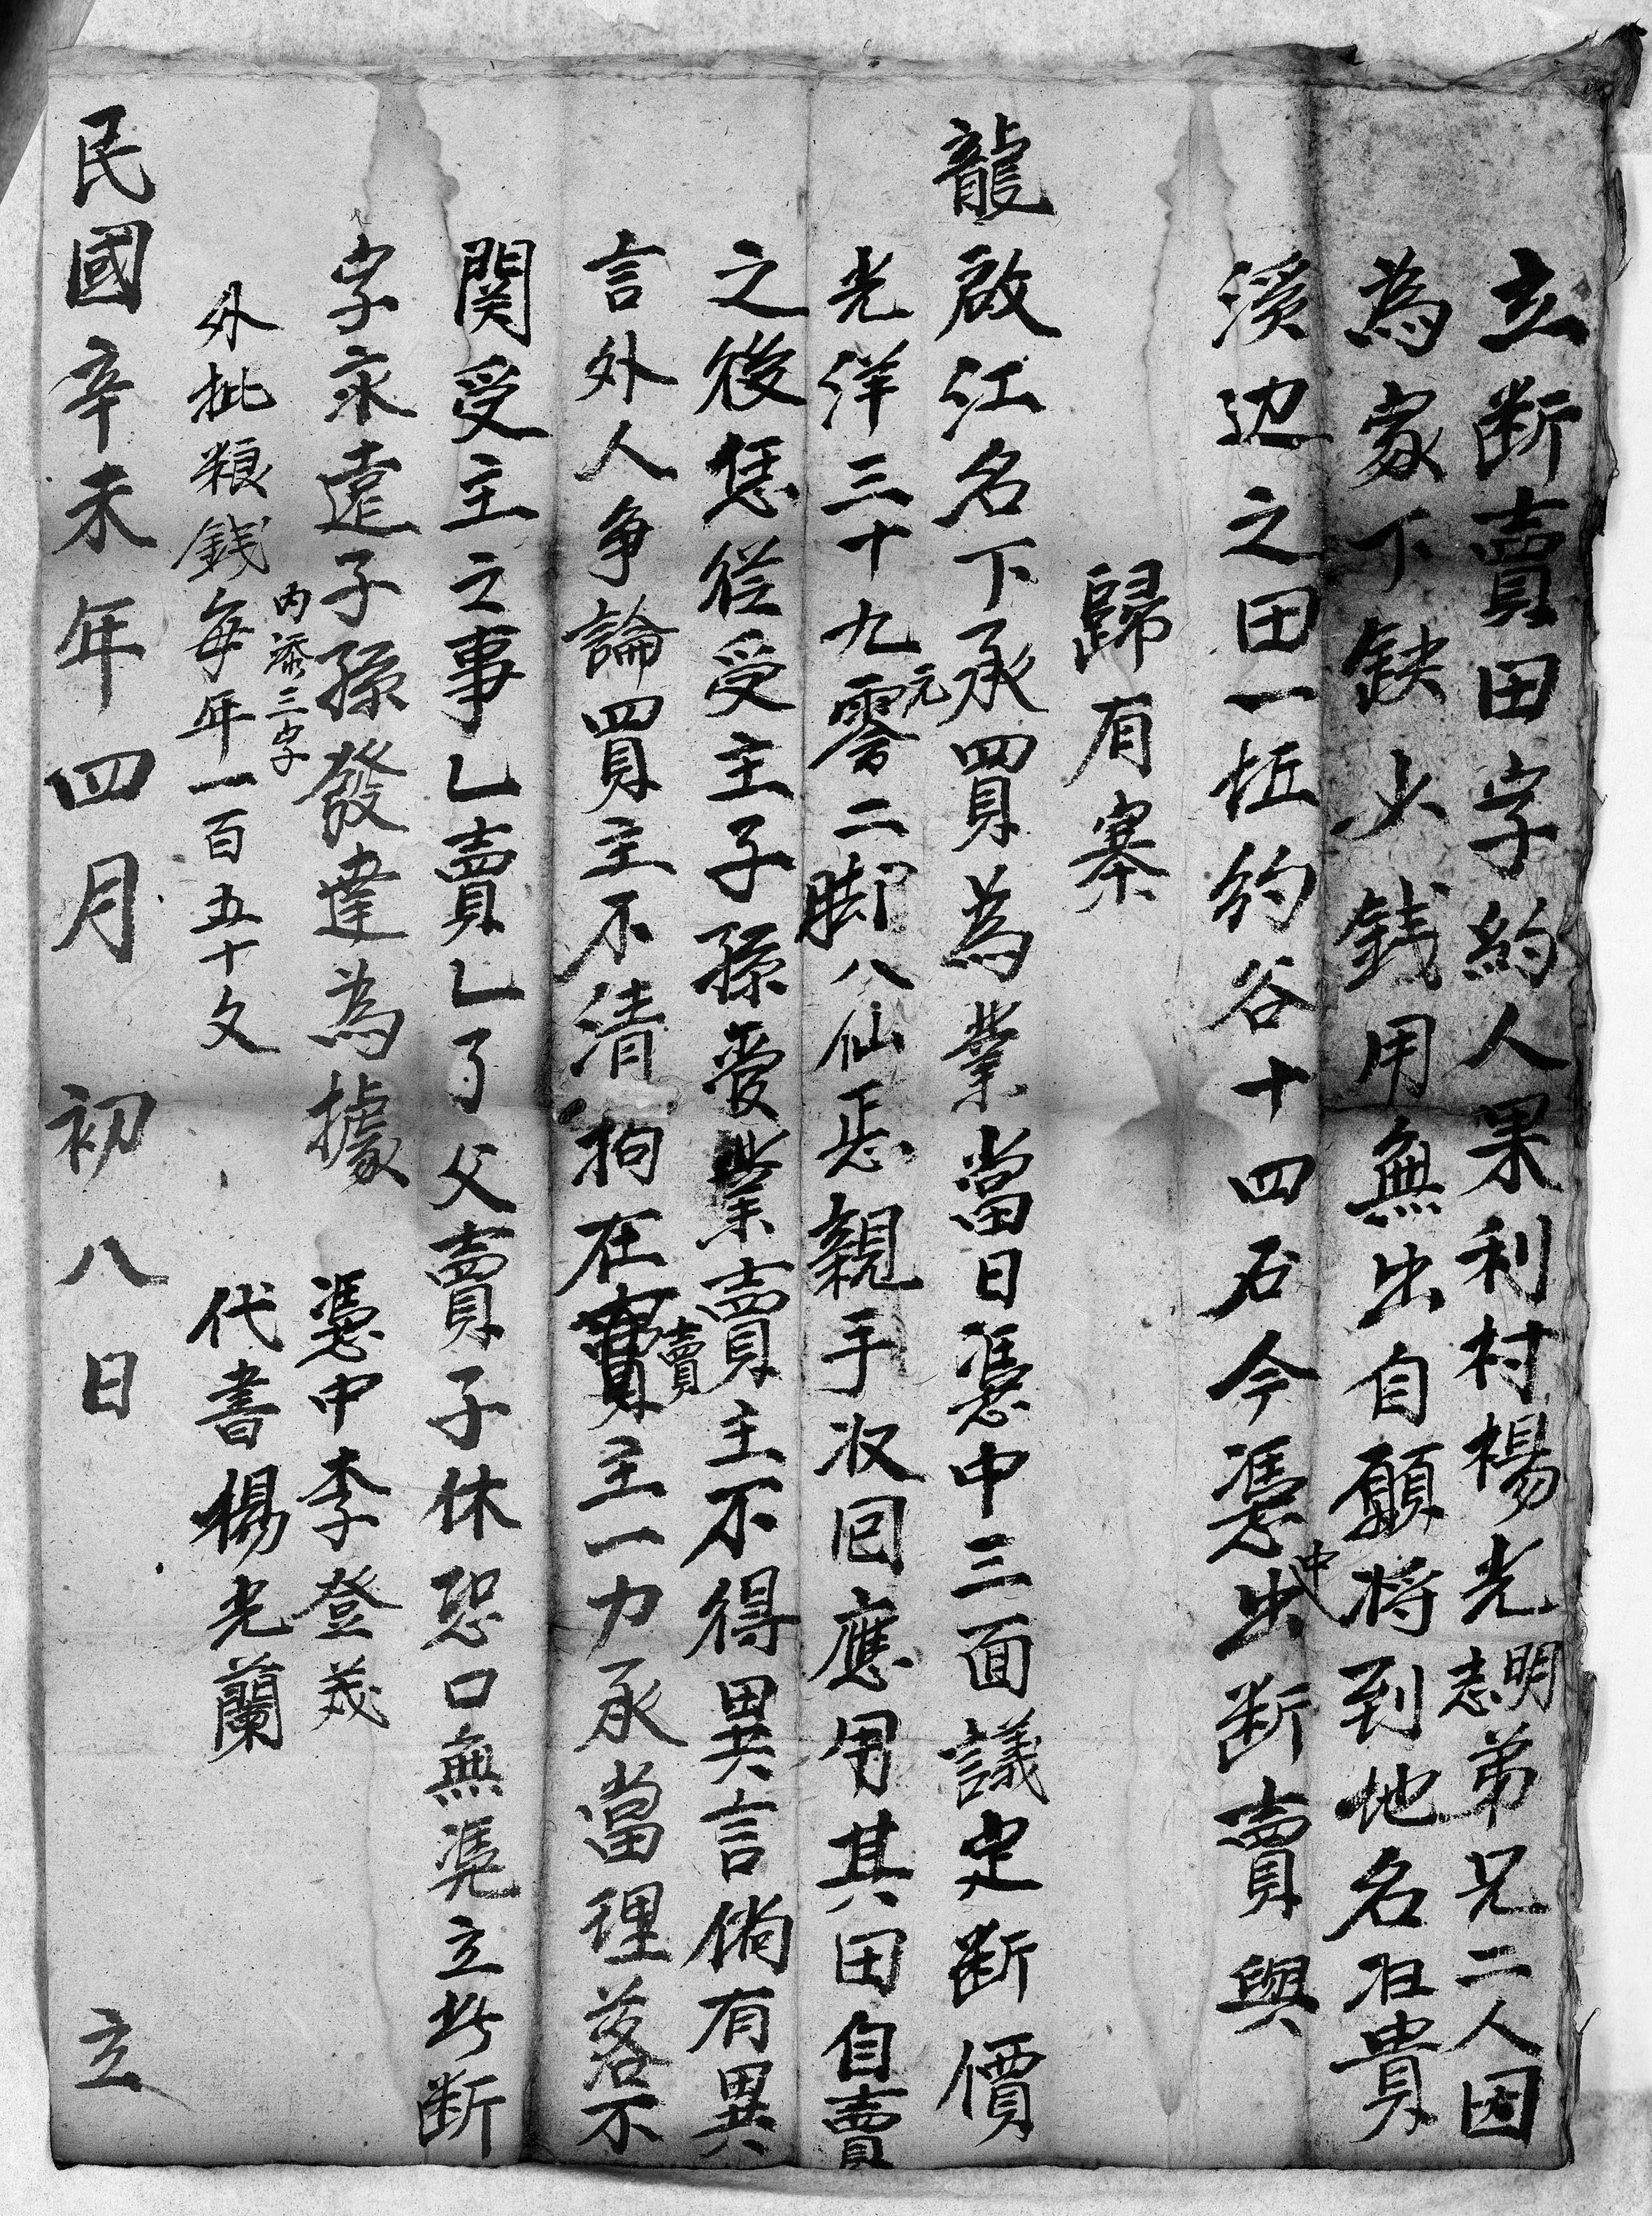 立断賣田字約人果利村楊光明志弟兄二人因
為家下缺少錢用無出自願將到地名𡉏貴
溪边之田一坵約谷十四石今憑中出断賣與
歸有寨
龍啟江名下承買為業當日憑中三面議定断價
光洋三十九元零二脚八仙正親手收回應用其田自賣
之後恁從受主子孫受業賣主不得異言倘有異
言外人争論買主不清拘在賣主一力承當理落不
関受主之事乚賣乚了父賣子休恐口無凴立此断
字永遠子孫發達為據
内添三字
憑中李登茂
外批粮錢每年一百五十文
代書楊光蘭
民國辛未年四月初八日立